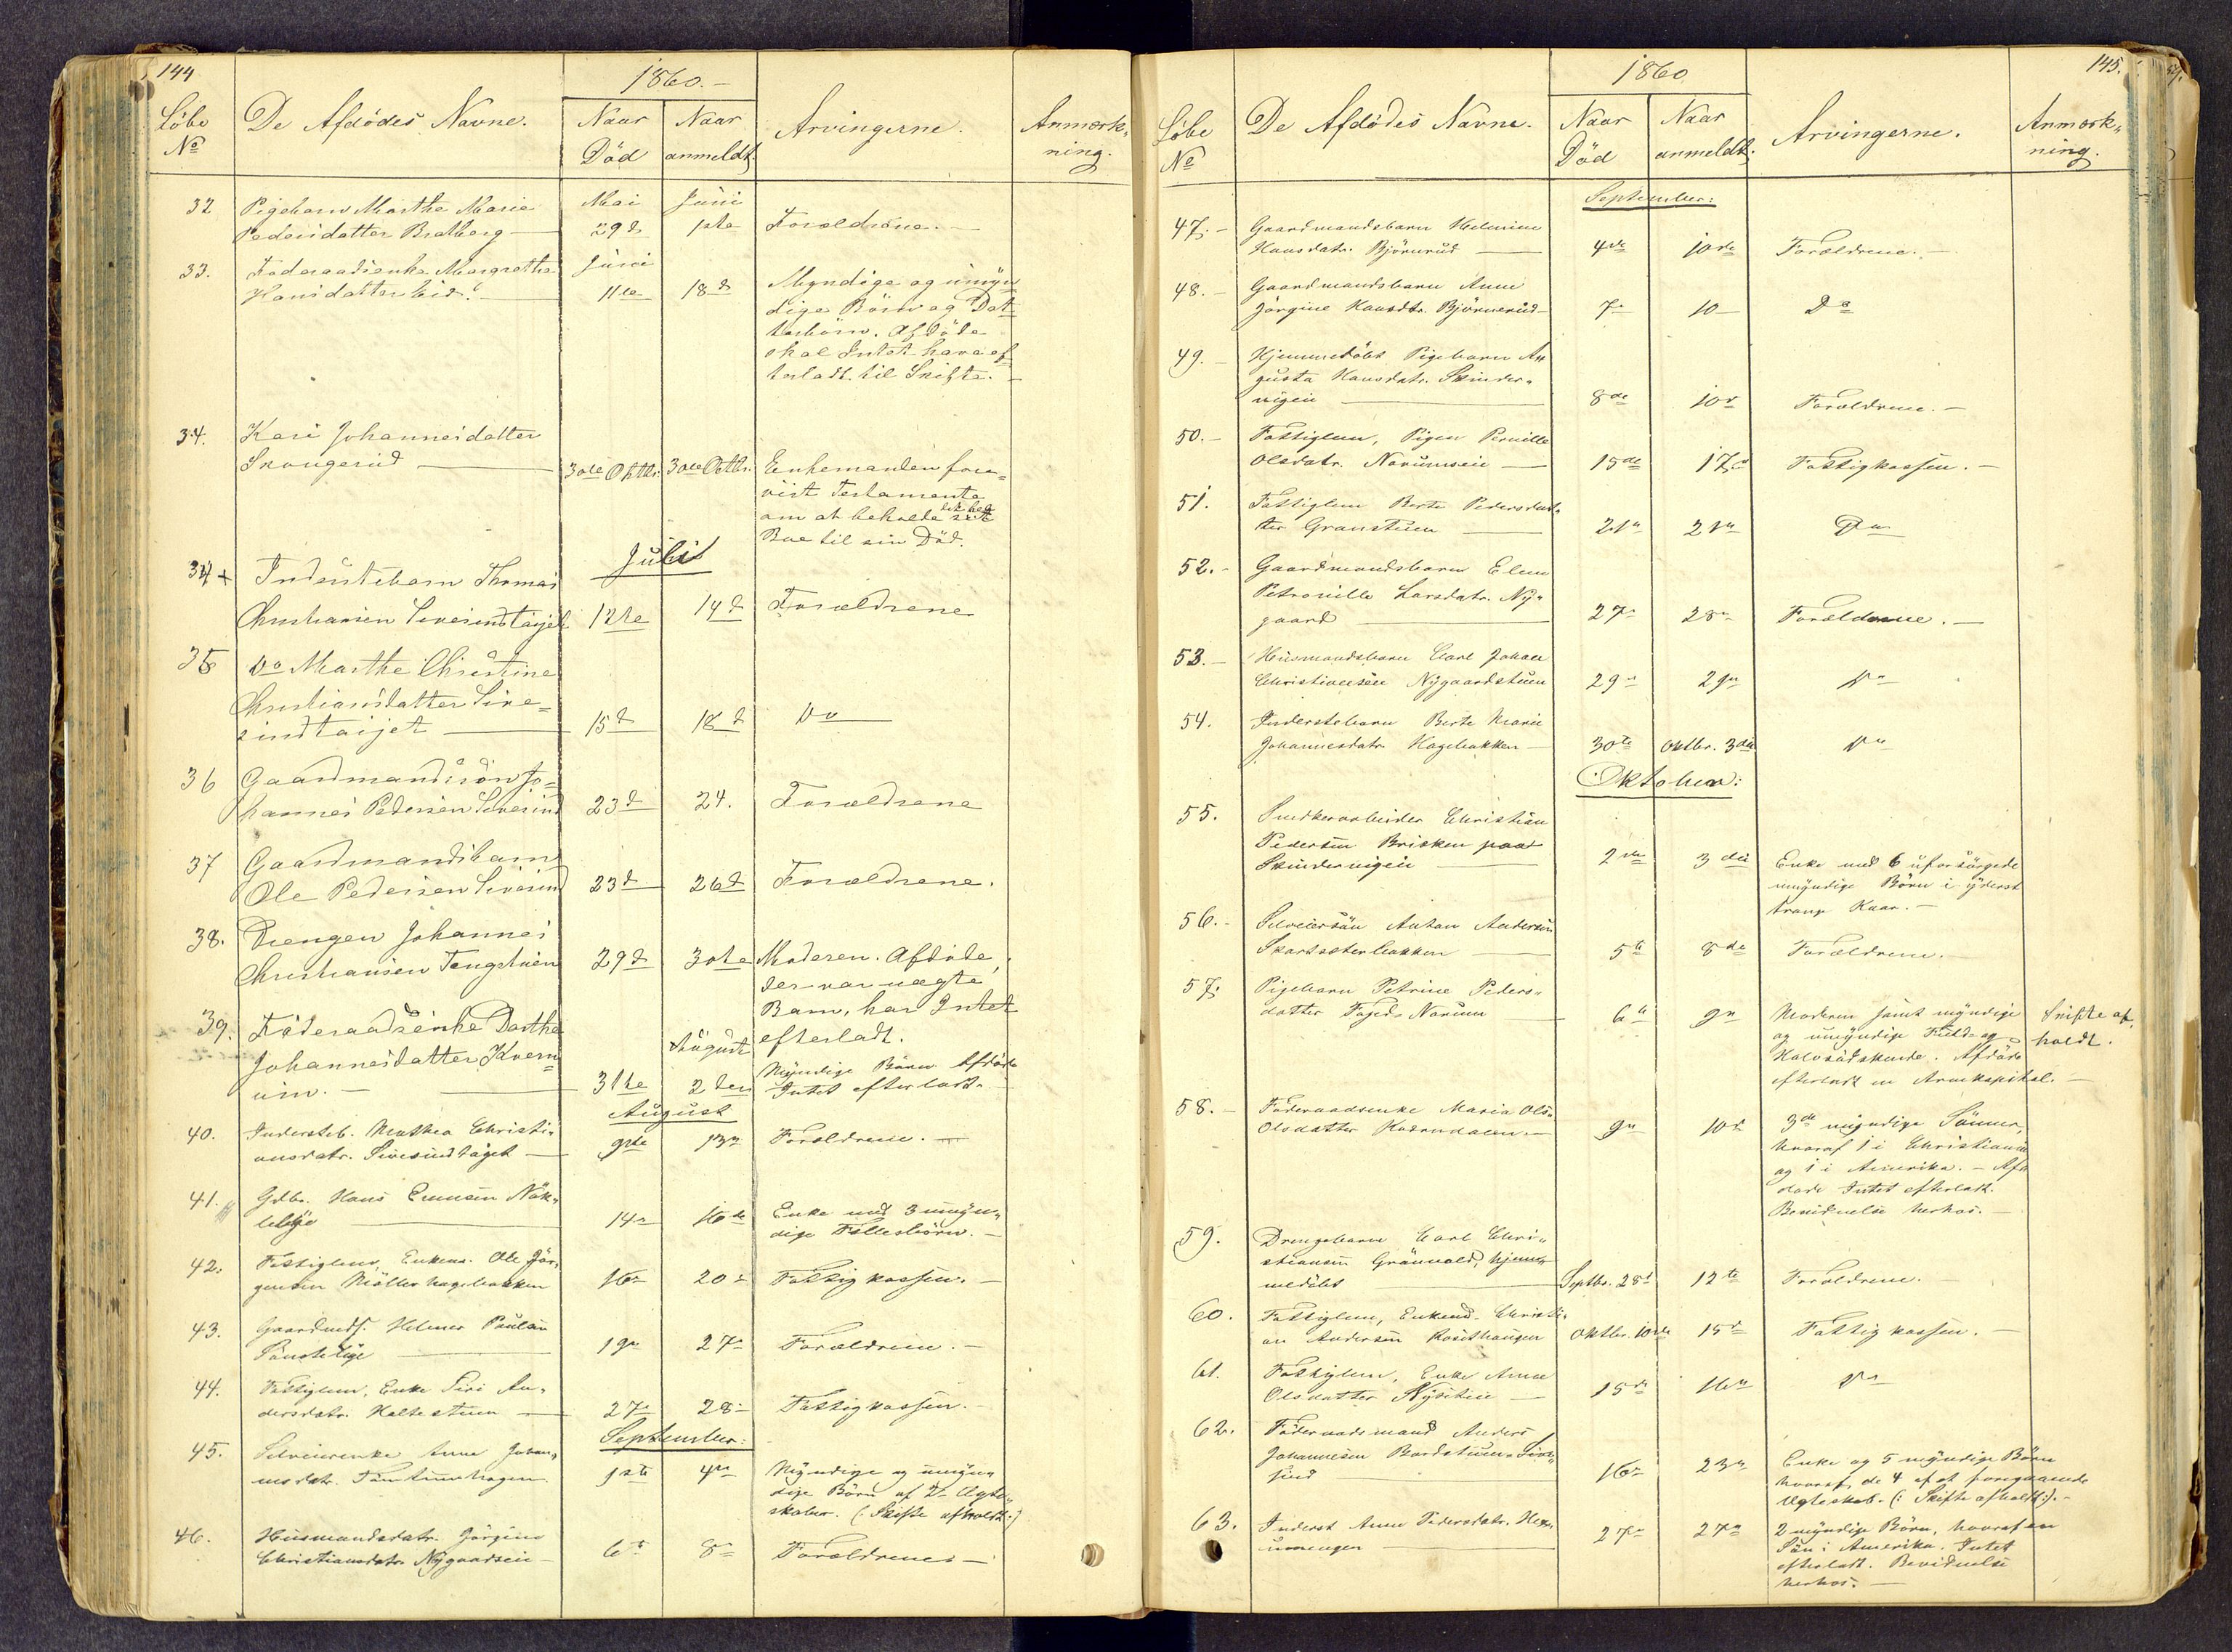 144
1860.-
Löbe
No
De Afdödes Navne.
Naar
Död
Naar
anmeldt.
Arvingerne.
Anmærk-
ning.
32
Pigebarn Marthe Marie
Pedersdatter Bratberg
Mai
29d
Juni
1ste
Forældrene.
33.
Föderaadsenke Margrethe
Hansdatter Eid.
Juni
11te
18d
Myndige og umyn
dige Börn og Dat
terbörn. Afdöde
skal Intet have ef
terladt til Skifte.
34.
Kari Johannesdatter
Skougerud
30te Oktbr.
30te Octbr.
Enkemanden fore-
vist Testamente
om at beholde
Boe til sin Död.
Juli
34 +
Inderstebarn Thomas
Christiansen Sivesindtaijet
12te
14d
Forældrene
35
Do Marthe Christine
Christiansdatter Sive=
sindtaijet
15d
18d
Do
36
Gaardmandssön Jo=
hannes Pedersen Sivesind
23d
24.
Forældrene
37
Gaardmandsbarn
Ole Pedersen Sivesind
23d
26d
Forældrene.
38.
Drengen Johannes
Christiansen Tengstuen
29d
30te
Moderen. Afdöde,
der var uægte
Barn, har Intet
efterladt.
39.
Föderaadsenke Dorthe
Johannesdatter Kvern
um.
31te
August
2den
Myndige Börn Afdöde
Intet efterladt.
August
40.
Andersteb. Mathea Christi-
ansdatr. Sivesindtaget
9de
13n
Forældrene.
41.
Gdbr. Hans Evensen Nök-
leberg
14n
16de
Enke med 3 umyn-
dige Fællesbörn.
42.
Fattiglem, Enkem. Ole Jör-
gensen Möllerhagebakken
16n
20n
Fattigkassen.
43.
Gaardmds. Helmer Paulsen
Sönsteby
19n
27n
Forældrene.
44.
Fattiglem, Enke Siri An-
dersdatr. Holtestuen
27n
28n
Fattigkassen.
September:
45.
Selveierenke Anne Johan-
nesdatr.
1ste
4de
Myndige og umyn-
dige Börn af 2 Ægte-
skaber. (: Skifte afholdt:)
46.
Husmandsdatr. Jörgine
Christiansdatr. Nygaardseie
6te
8n
Forældrene.
145.
1860
Löbe
No
De Afdödes Navne.
Naar
Död
Naar
anmeldt.
Arvingerne.
Anmærk-
ning.
September:
47.
Gaardmandsbarn Helmine
Hansdatr. Björnerud
4de
10de
Forældrene.
48.
Gaardmandsbarn Anne
Jörgine Hansdtr. Björnerud
7n
10
Do
49.
Hjemmedöbt Pigebarn Au
gusta Hansdatr. Skinder-
vigen
8de
10d
Forældrene.
50.
Fattiglem, Pigen Pernille
Olsdatr. Narumseie
15de
17d
Fattigkassen.
51.
Fattiglem Berte Pedersdat-
ter Granstuen
21n
21n
Do
52.
Gaardmandsbarn Elen
Petronille Larsdatr. Ny-
gaard
27n
28n
Forældrene.
53.
Husmandsbarn Carl Johan
Christiansen Nygaardstuen
29n
29n
Do
54.
Inderstebarn Berte Marie
Johannesdatr. Hagebakken
30te
Oktbr. 3die
Do
Oktober:
55.
Snedkerarbeider Christian
Pedersen Brisken paa
Skindervigen
2den
3die
Enke med 6 uforsörgede
umyndige Börn i yderst
trange Kaar.
56.
Selveiersön Anton Andersen
Skartsæterbakken
5te
8de
Forældrene.
57.
Pigebarn Petrine Peders-
datter Narum
6te
9n
Moderen samt myndige
og umyndige Feld- og
Halvsödskende. Afdöde
efterladt en Arvekapital.
Skifte af-
holdt.
58.
Föderaadsenke Maria Ols-
Olsdatter
9n
10de
3de myndige Sönner,
hvoraf 1 i Christiania
og 1 i Amerika. - Af-
döde Intet efterladt.
Bevidnelse herhos.
59.
Drengebarn Carl Chri-
stiansen Grönvold, hjem-
medöbt
Septbr. 28d
12te
Forældrene.
60.
Fattiglem, Enkemd. Christi-
an Andersen
Oktbr. 10de
15d
Fattigkassen.
61.
Fattiglem, Enke Anne
Olsdatter Nyseteie
15de
16n
Do
62.
Föderaadsmand Anders
Johannesen Bordstuen-Sive-
sind
16n
23n
Enke og 5 myndige Börn
hvoraf de 4 af et foregaaende
Ægteskab. (: Skifte afholdt :).
63.
Inderst Anne Pedersdatr.
27n
27n
2 myndige Börn, hvoraf en
Sön i Amerika. Intet
efterladt. Bevidnelse
herhos.